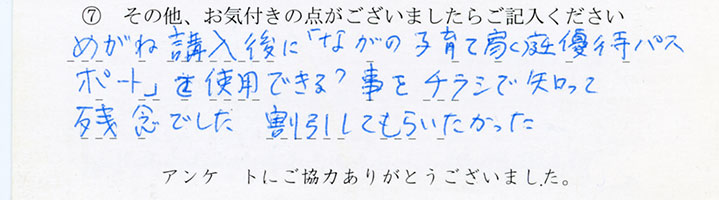 ⑦ その他、お気付きの点がございましたらご記入ください
めがね講入後に「ながの子育て家庭優待パス
ポート」を使用できる?事をチラシで知って
残念でした 割引してもらいたかった
アンケートにご協力ありがとうございました。